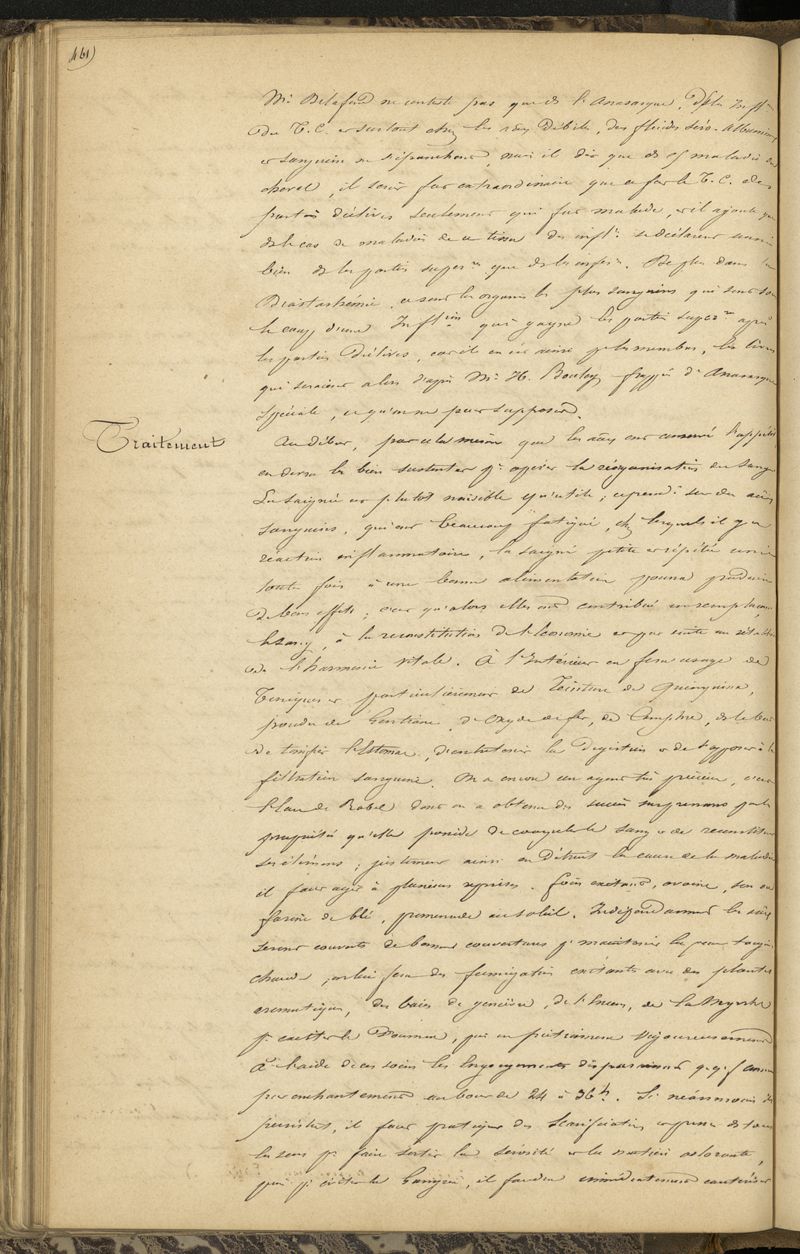 461)
Mr. Delafond ne conteste pas que ds l'Anasarque, ds les Infl.on
du T. C. et surtout chez les débile, des fluides séro-albumineux
et sanguins ne s'épanchent, mais il dit que ds maladie du
cheval, il serait fort extraordinaire que ce fut le T. C. des
parties déclives seulement qui fut malade, et il ajoute que
ds le cas de maladie de ce tissu des infl.on se déclarent aussi
bien ds les parties super.res que ds les infér.res. De plus dans la
Diastashémie, ce sont les organes les plus sanguins qui sont sous
le coup d'une Infl.on qui gagne les parties super.res après
les parties déclives, car il en est ainsi pr les membres, les lèvres
qui seraient alors d'après Mr. H. Bouley frappés d'Anasarque
Spéciale, ce qu'on ne peut supposer.
Traitement
Au début, par cela même que les ont conservé l'appétit
on devra les bien sustenter pr opérer la réorganisation du sang.
La saignée est plutôt nuisible qu'utile; cepend.t sur des
sanguins, qui ont beaucoup fatigué, chez lesquels il y a
réaction inflammatoire, la saignée petite et répétée unie
toute fois à une bonne alimentation pourra produire
de bons effets; car qu'alors elles ont contribué en remplaçant
le sang, à la reconstitution de l'économie et par suite au
de l'harmonie vitale. À l'Intérieur on fera usage de
Toniques et particulièrement de Teinture de Quinquina,
poudre de Gentiane, d'Oxyde de fer, de Camphre, ds le but
de tonifier l'Estomac, d'entretenir la Digestion et de s'opposer à la
filtration sanguine. On a encore un agent très précieux, c'est
l'Eau de Rabel dont on a obtenu des succès surprenants par la
propriété qu'elle possède de coaguler le sang et de reconstituer
ses éléments; justement ainsi on détruit la cause de la maladie
il faut agir à plusieurs reprises. Foin excitant, avoine, son ou
farine de blé, promenade au soleil. Indépendamment les
seront couverts de bonnes couvertures pr maintenir la peau
chaude, on lui fera des fumigations excitantes avec des plantes
aromatiques, des baies de genièvre, de l'Encens, de la Myrrhe
pr exciter le Poumon, puis on frictionnera vigoureusement
à l'aide de ces soins les Engorgements disparaissent comme
par enchantement au bout de 24 à 36 h. Si néanmoins ils
persistent, il faut pratiquer des Scarifications et presser ds tous
les sens pr faire sortir la sérosité et la matière colorante,
puis pr éviter la Gangrène, il faudra immédiatement cautériser